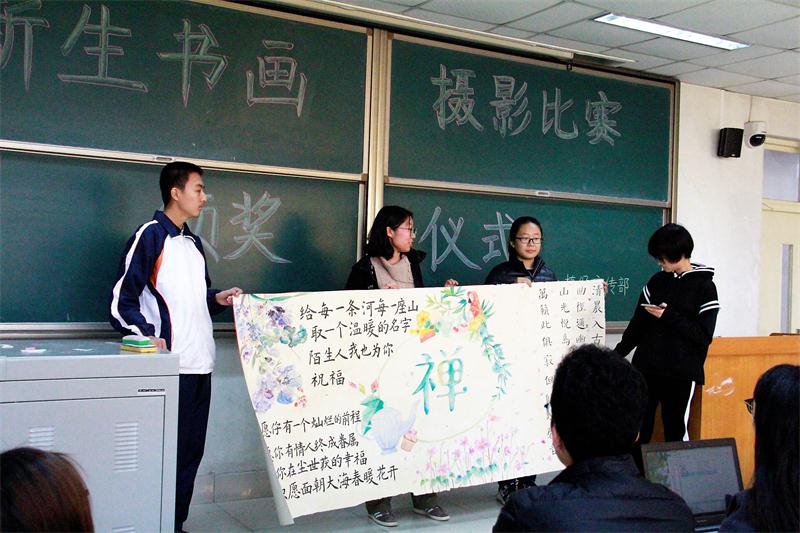 新生书画
摄影比赛
颁奖
仪式
传部
给每一条河每一座山
取一个温暖的名字
陌生人我也为你
祝福
愿你有一个灿烂的前程
你有情人终成眷属
你在尘世获的幸福
愿面朝大海春暖花开
禅
清晨入古
曲徑通幽
山光悅鳥
萬籟此俱寂但